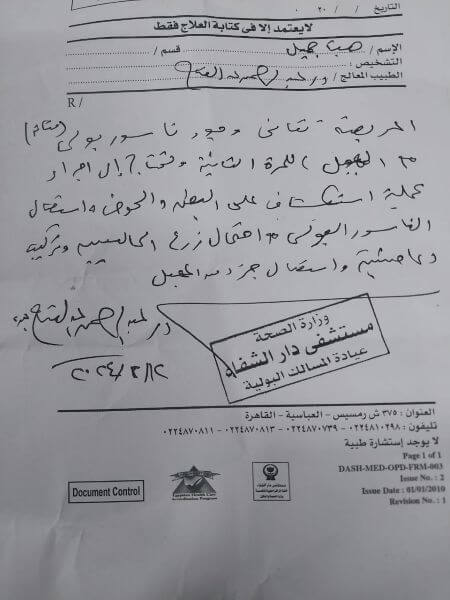 التاريخ / / ٢٠ ٠
لايعتمد إلا فى كتابة العلاج فقط
الإسم / هبة جميل قسم /
التشخيص :
الطبيب المعالج / د/ عبد الرحمن عبد الفتاح
R /
المريضة تعانى وجود ناسور بولى
للمرة الثانية وتحتاج إلى اجراء
عملية استكشاف على البطن والحوض واستئصال
الناسور البولى واحتمال زرع الحالبين وتركيب
دعامتين واستئصال جزء من المهبل
د/ عبد الرحمن عبد الفتاح
٢٠٢٤/٣/١٢
وزارة الصحة
مستشفى دار الشفاء
عيادة المسالك البولية
العنوان : ٣٧٥ ش رمسيس - العباسية - القاهرة
تليفون : ٠٢٢٤٨١٠٢٩٨ - ٠٢٢٤٨٧٠٧٣٩ - ٠٢٢٤٨٧٠٨١٣ - ٠٢٢٤٨٧٠٨١١
لا يوجد إستشارة طبية
Page 1 of 1
DASH-MED-OPD-FRM-003
Issue No. : 2
Issue Date : 01/01/2010
Revision No. : 1
Document Control
Egyptian Health Care
Accreditation Program